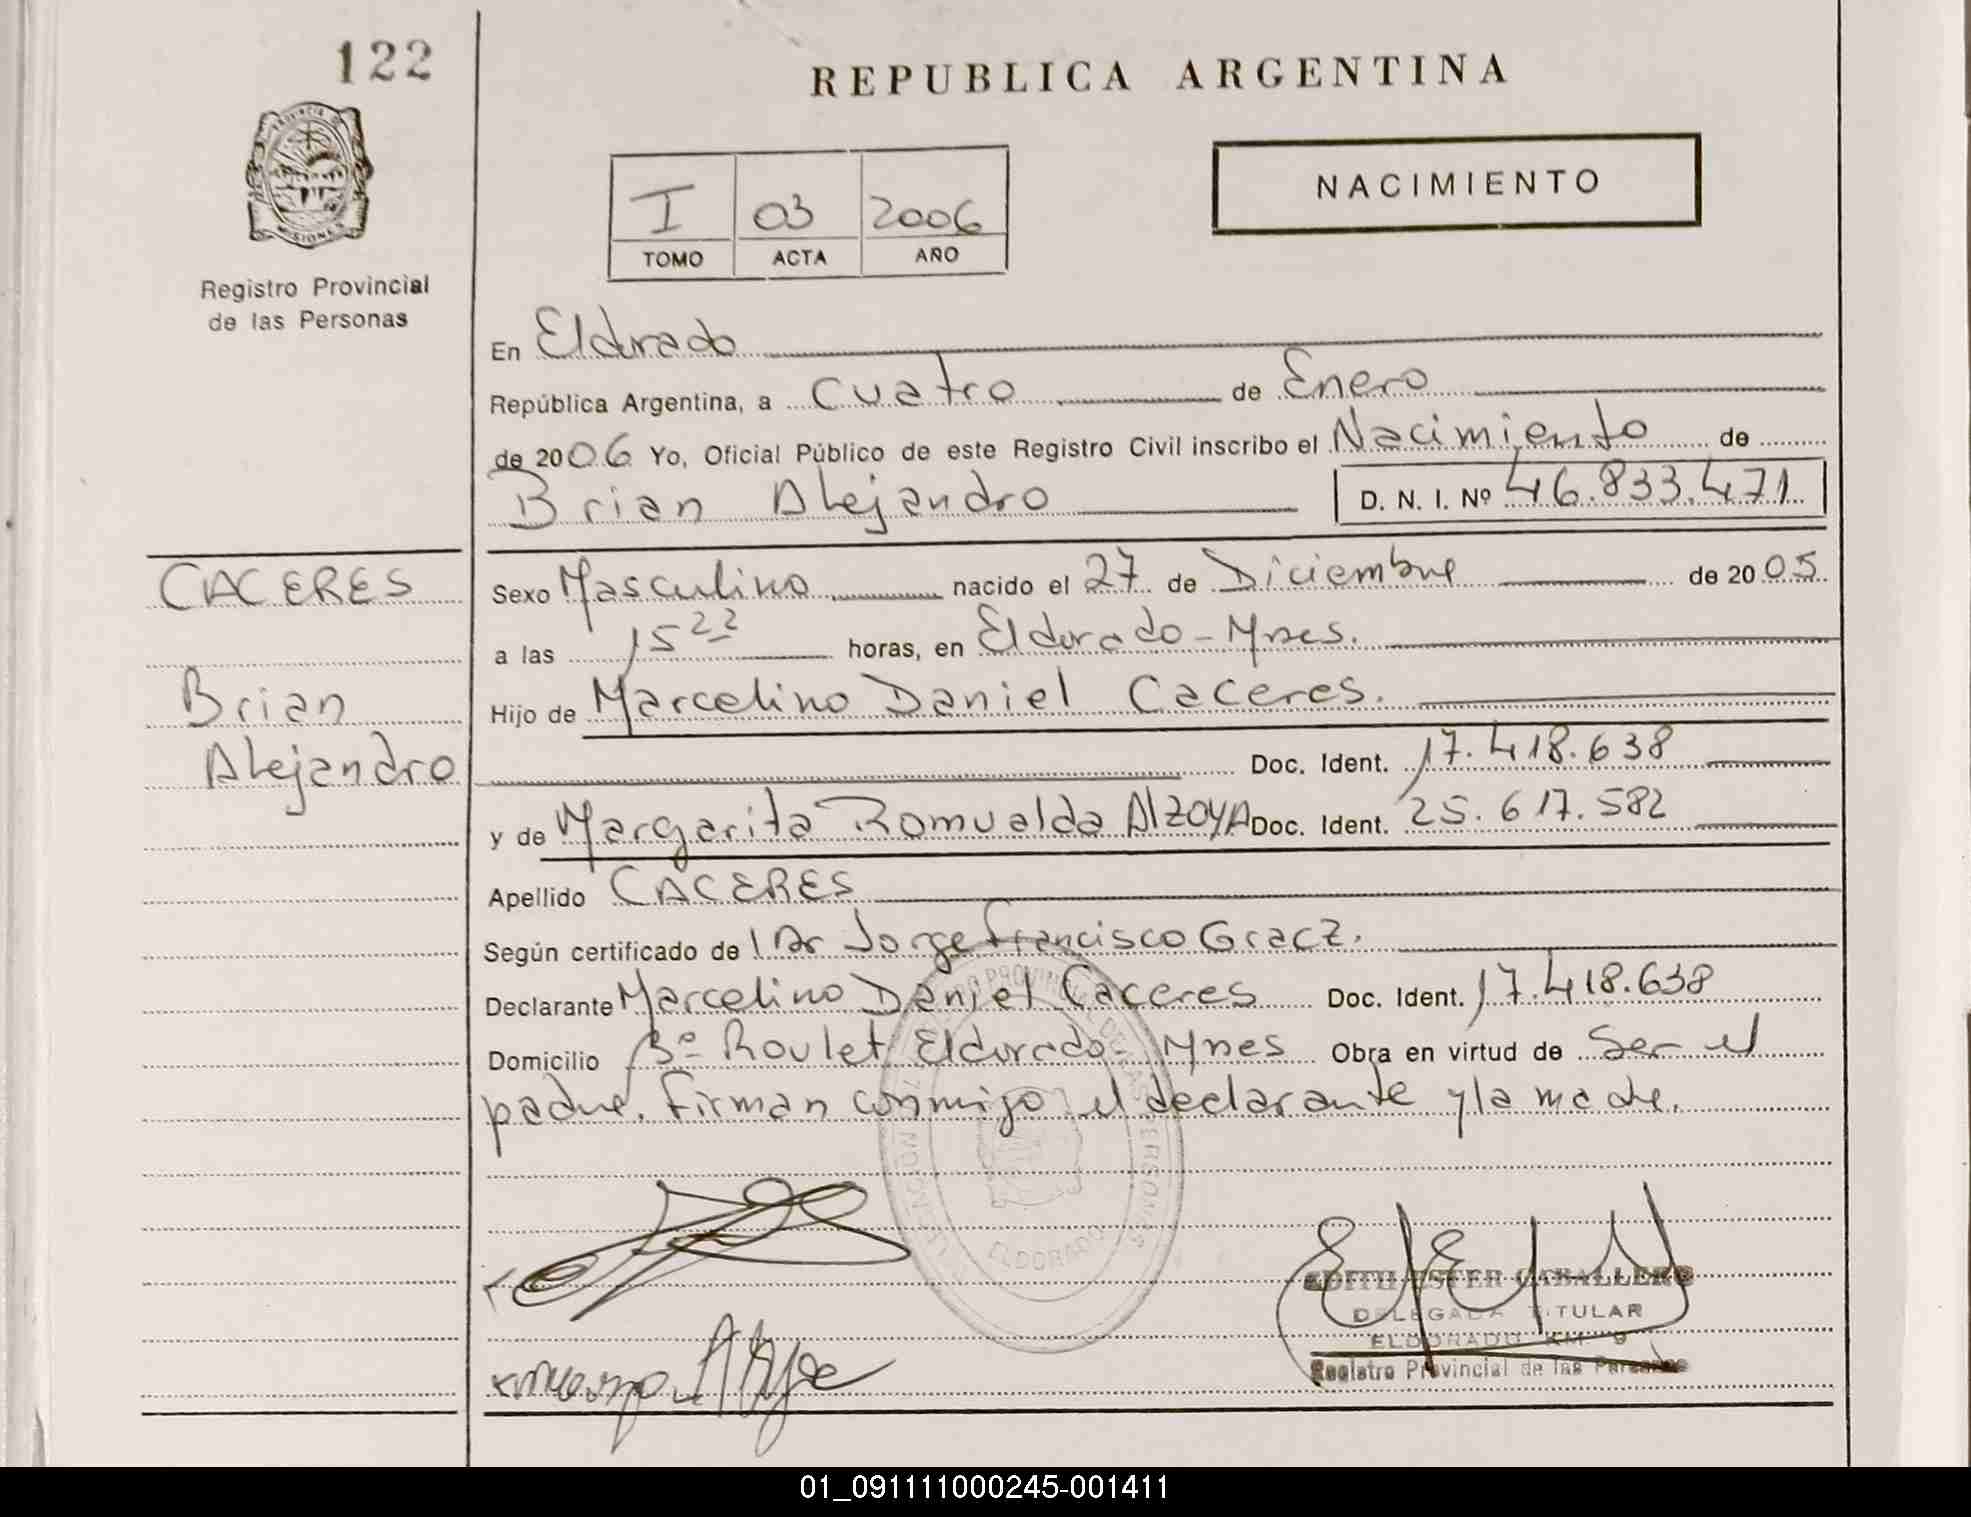 122
REPUBLICA ARGENTINA
PROVINCIA DE
MISIONES
NACIMIENTO
I 03 2006
TOMO ACTA AÑO
Registro Provincial
de las Personas
En Eldorado
República Argentina, a cuatro de Enero
de 2006 Yo, Oficial Público de este Registro Civil inscribo el Nacimiento de
Brian Alejandro D. N. I. Nº 46.833.471
CACERES
Brian
Alejandro
Sexo Masculino nacido el 27 de Diciembre de 2005
a las 15 22 horas, en Eldorado - Mnes.
Hijo de Marcelino Daniel Caceres.
Doc. Ident. 17.418.638
y de Margarita Romualda AlzoyA Doc. Ident. 25.617.582
Apellido CACERES
Según certificado de Dr Jorge Francisco Gracz.
Declarante Marcelino Daniel Caceres Doc. Ident. 17.418.638
Domicilio Bº Roulet Eldorado - Mnes Obra en virtud de Ser el
padre. Firman conmigo el declarante y la madre.
PROVINCIAL DE LAS PERSONAS
ELDORADO
EDITH ESTER CABALLERO
DELEGADA TITULAR
ELDORADO KM 9
Registro Provincial de las Personas
01_091111000245-001411